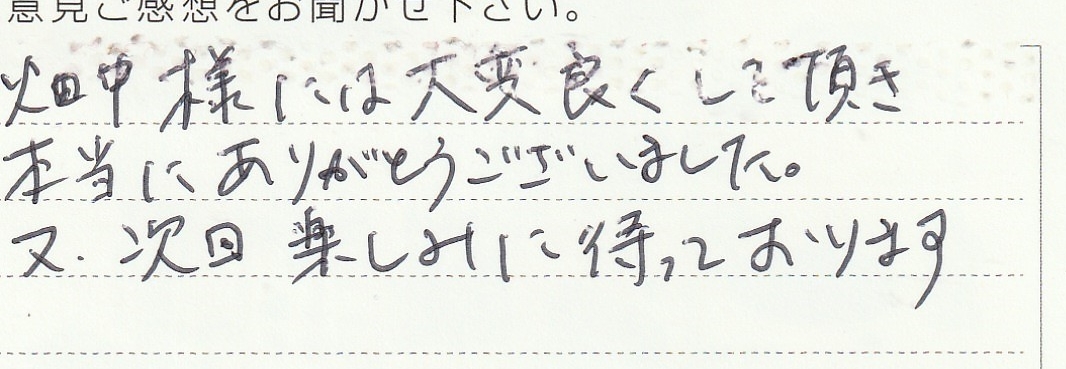 意見ご感想をお聞かせ下さい。
畑中様には大変良くして頂き
本当にありがとうございました。
又、次回楽しみに待っております